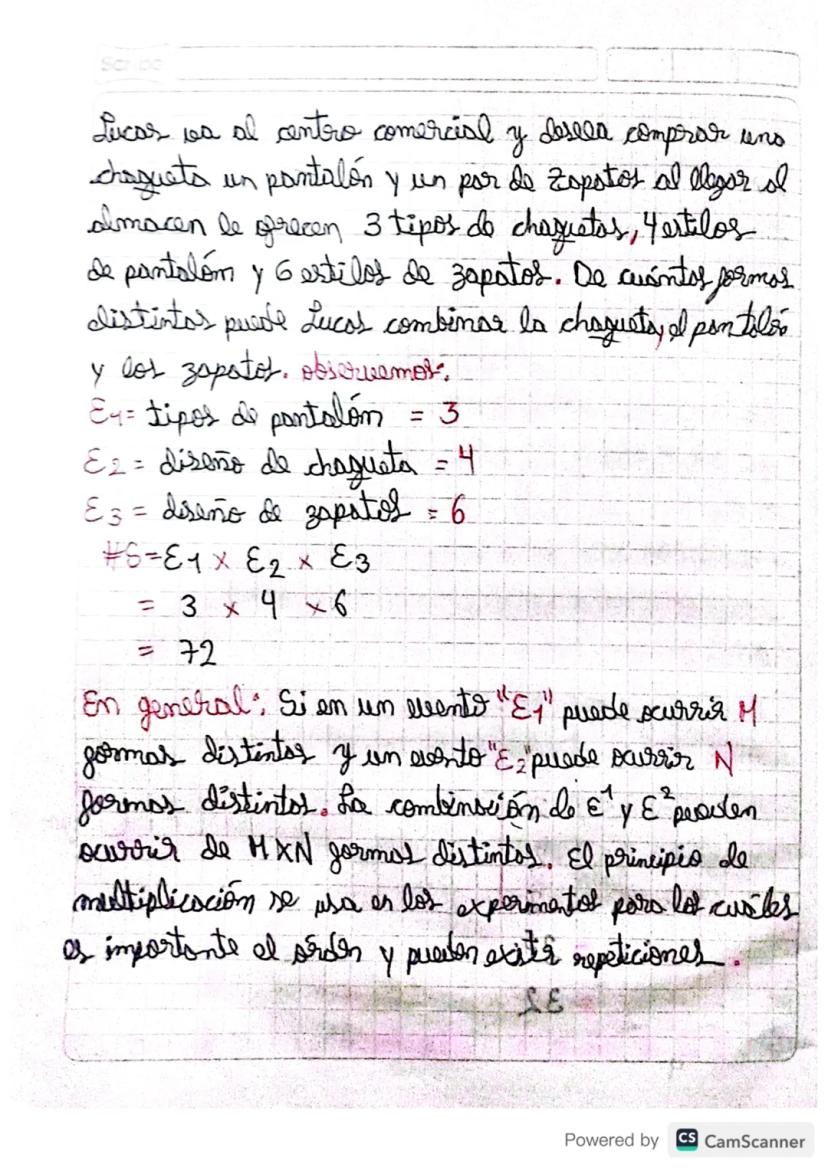 Scribe
Lucas va al centro comercial y desea comprar una
chaqueta un pantalón y un par de zapatos al llegar al
almacen le ofrecen 3 tipos de chaquetas, 4 estilos
de pantalón y 6 estilos de zapatos. De cuántas formas
distintas puede Lucas combinar la chaqueta, el pantalón
y los zapatos. observemos:
E1= tipos de pantalón = 3
E2 = diseño de chaqueta = 4
E3 = diseño de zapatos = 6
#S=E1 x E2 x E3
= 3 x 4 x 6
= 72
En general: Si en un evento "E1" puede ocurrir M
formas distintas y un evento "E2" puede ocurrir N
formas distintas. La combinación de E1 y E2 pueden
ocurrir de MXN formas distintas. El principio de
multiplicación se usa en los experimentos para los cuáles
es importante el órden y pueden existir repeticiones.
Powered by CS CamScanner